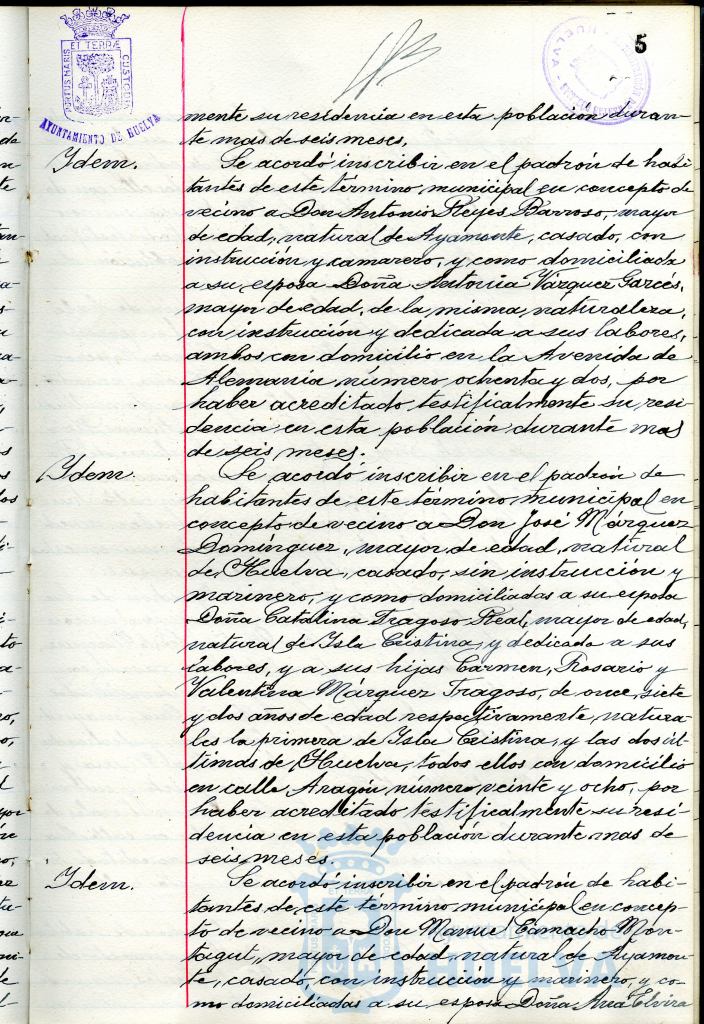 5
PORTUS MARIS ET TERRÆ CUSTODIA
AYUNTAMIENTO DE HUELVA
mente su residencia en esta población duran-
te mas de seis meses.
Idem.
Se acordó inscribir en el padrón de habi-
tantes de este término municipal en concepto de
vecino a Don Antonio Reyes Barroso, mayor
de edad, natural de Ayamonte, casado, con
instrucción y camarero, y como domiciliada
a su esposa Doña Antonia Vázquez Garcés,
mayor de edad, de la misma naturaleza,
con instrucción y dedicada a sus labores,
ambos con domicilio en la Avenida de
Alemania número ochenta y dos, por
haber acreditado testificalmente su resi-
dencia en esta población durante mas
de seis meses.
Idem.
Se acordó inscribir en el padrón de
habitantes de este término municipal en
concepto de vecino a Don José Márquez
Domínguez, mayor de edad, natural
de Huelva, casado, sin instrucción y
marinero, y como domiciliadas a su esposa
Doña Catalina Fragoso Real, mayor de edad,
natural de Isla Cristina, y dedicada a sus
labores, y a sus hijas Carmen, Rosario y
Valentina Márquez Fragoso, de once, siete
y dos años de edad respectivamente, natura-
les la primera de Isla Cristina, y las dos úl-
timas de Huelva, todos ellos con domicilio
en calle Aragón número veinte y ocho, por
haber acreditado testificalmente su resi-
dencia en esta población durante mas de
seis meses.
Idem.
Se acordó inscribir en el padrón de habi-
tantes de este término municipal en concep-
to de vecino a Don Manuel Camacho Mon-
tagut, mayor de edad, natural de Ayamon-
te, casado, con instrucción y marinero, y co-
mo domiciliadas a su esposa Doña Ana Elvira
Ayuntamiento de
HUELVA